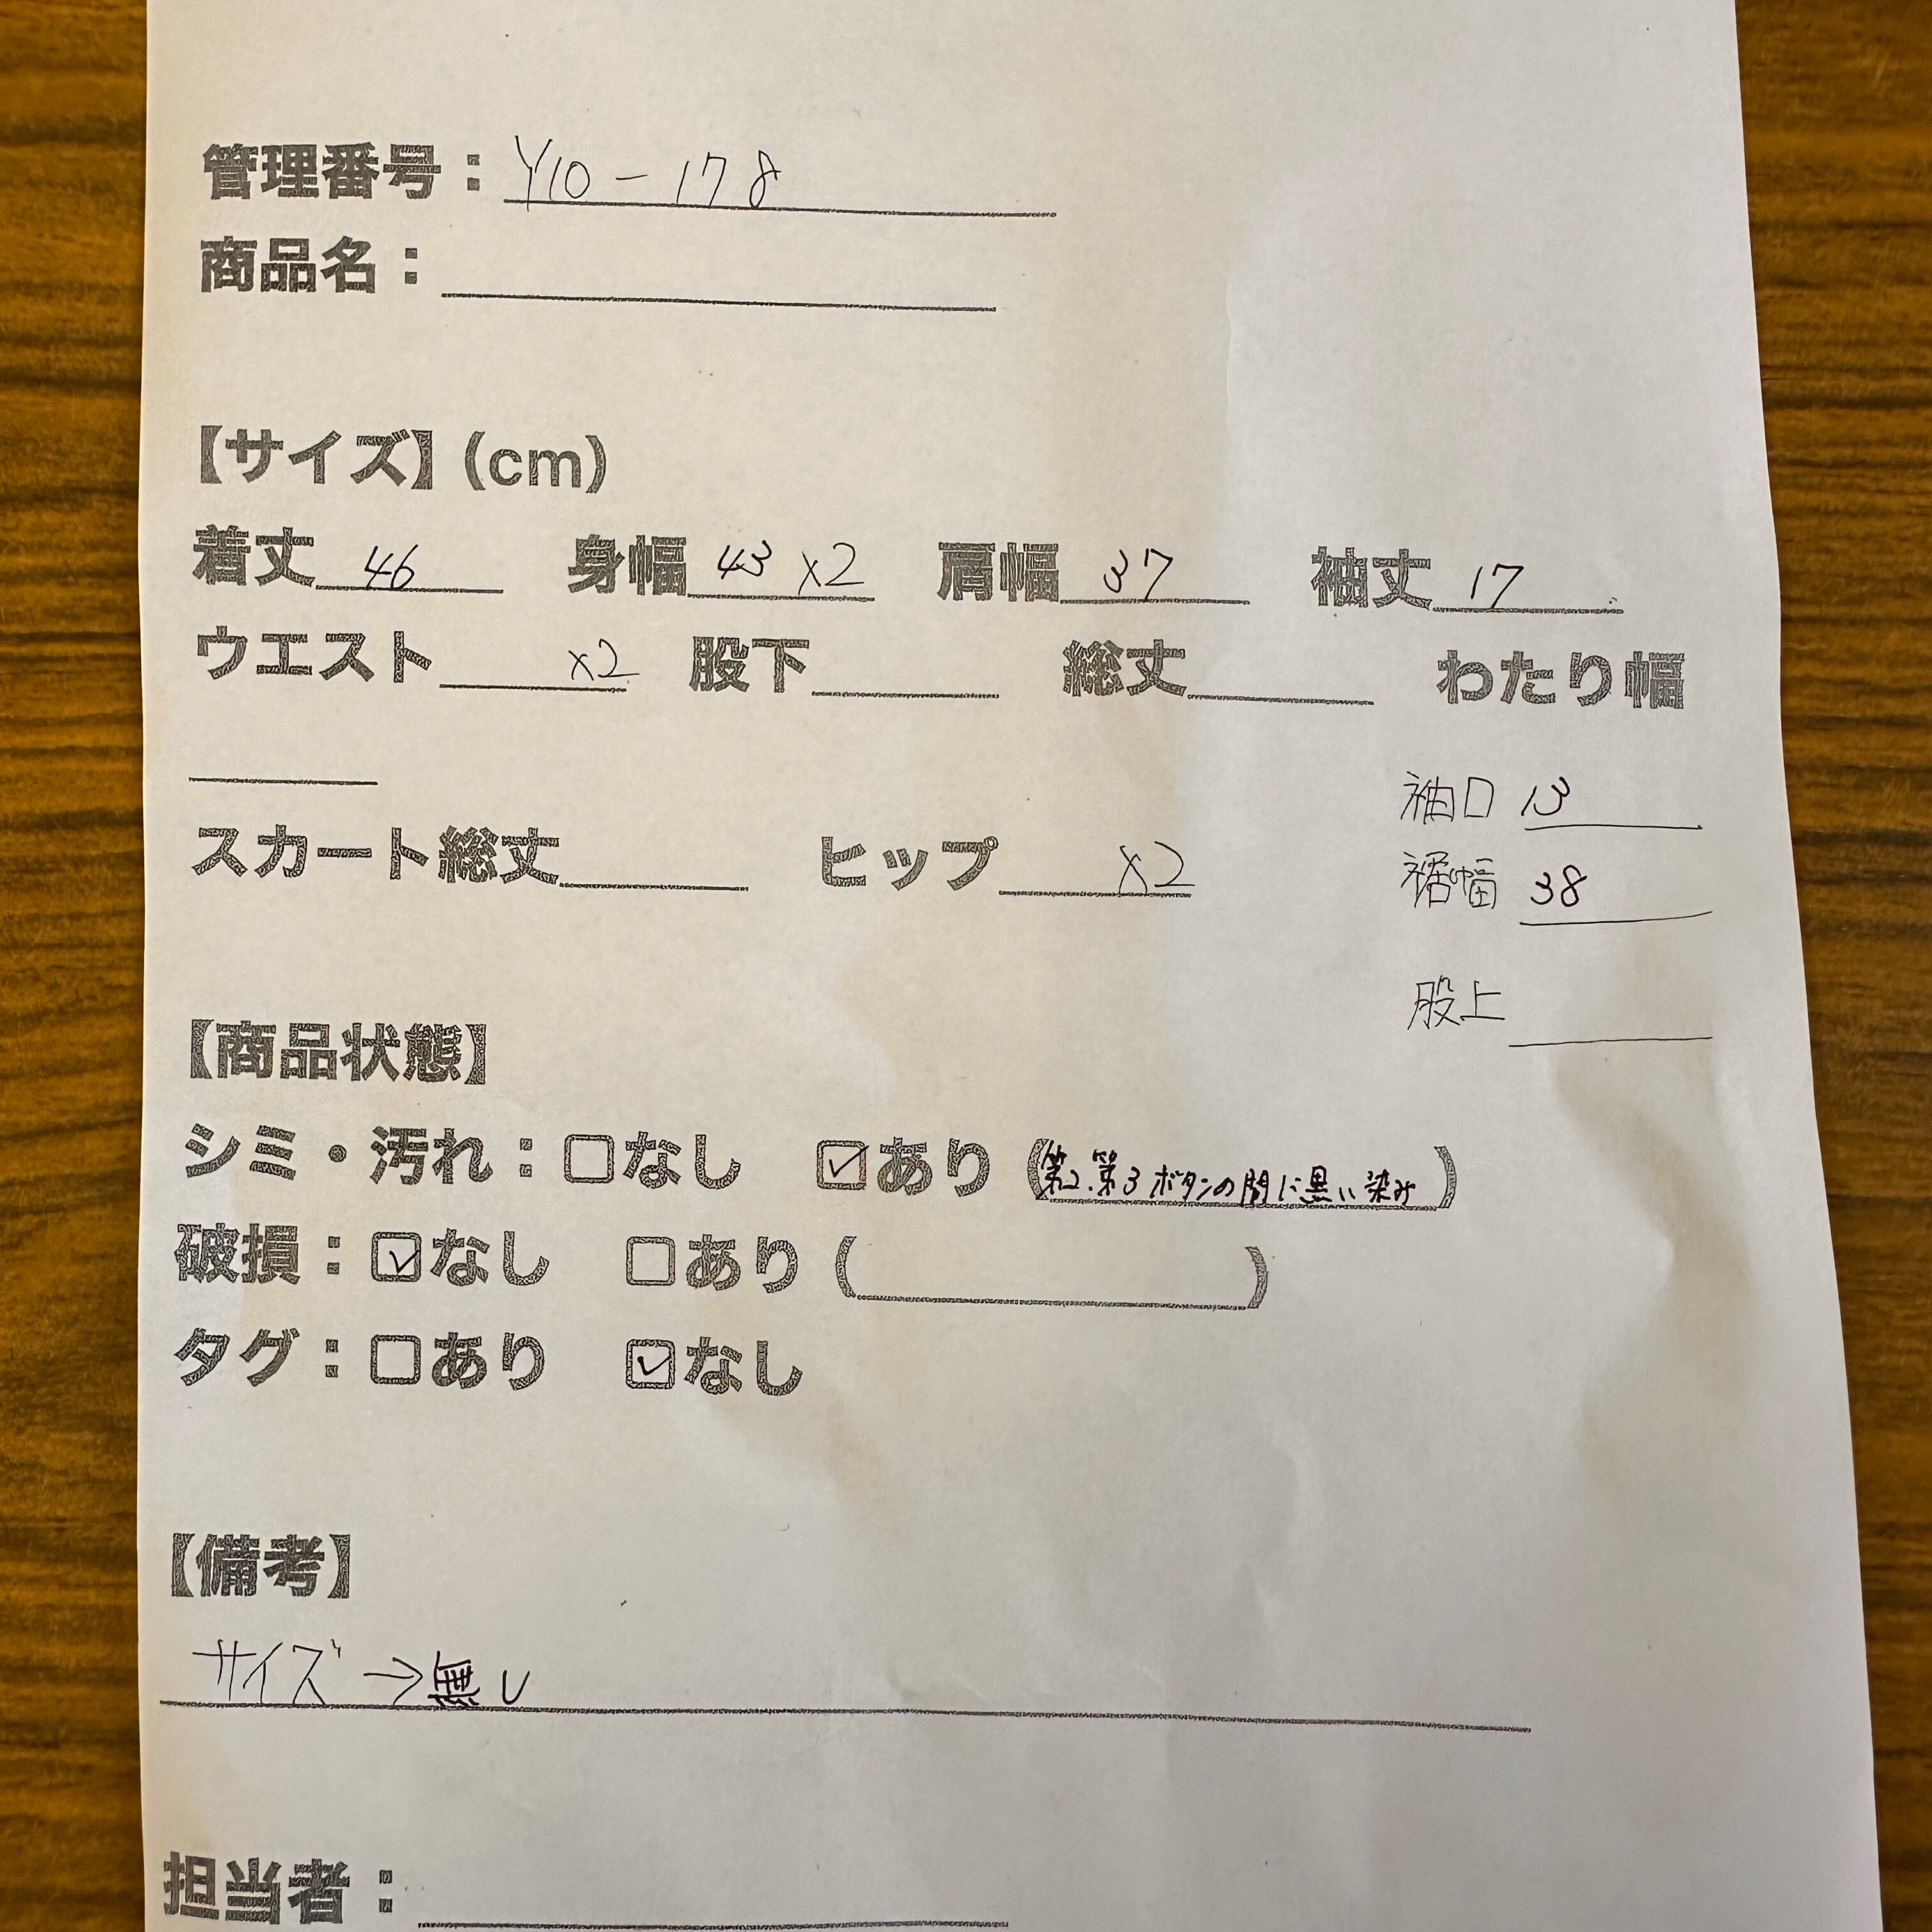 管理番号：Y10-178
商品名：
【サイズ】(cm)
着丈 46 身幅 43 ×2 肩幅 37 袖丈 17
ウエスト ×2 股下 総丈 わたり幅
袖口 13
スカート総丈 ヒップ ×2
裾幅 38
股上
【商品状態】
シミ・汚れ：□なし ☑あり (第2.第3ボタンの間に黒い染み)
破損：☑なし □あり ( )
タグ：□あり ☑なし
【備考】
サイズ→無し
担当者：